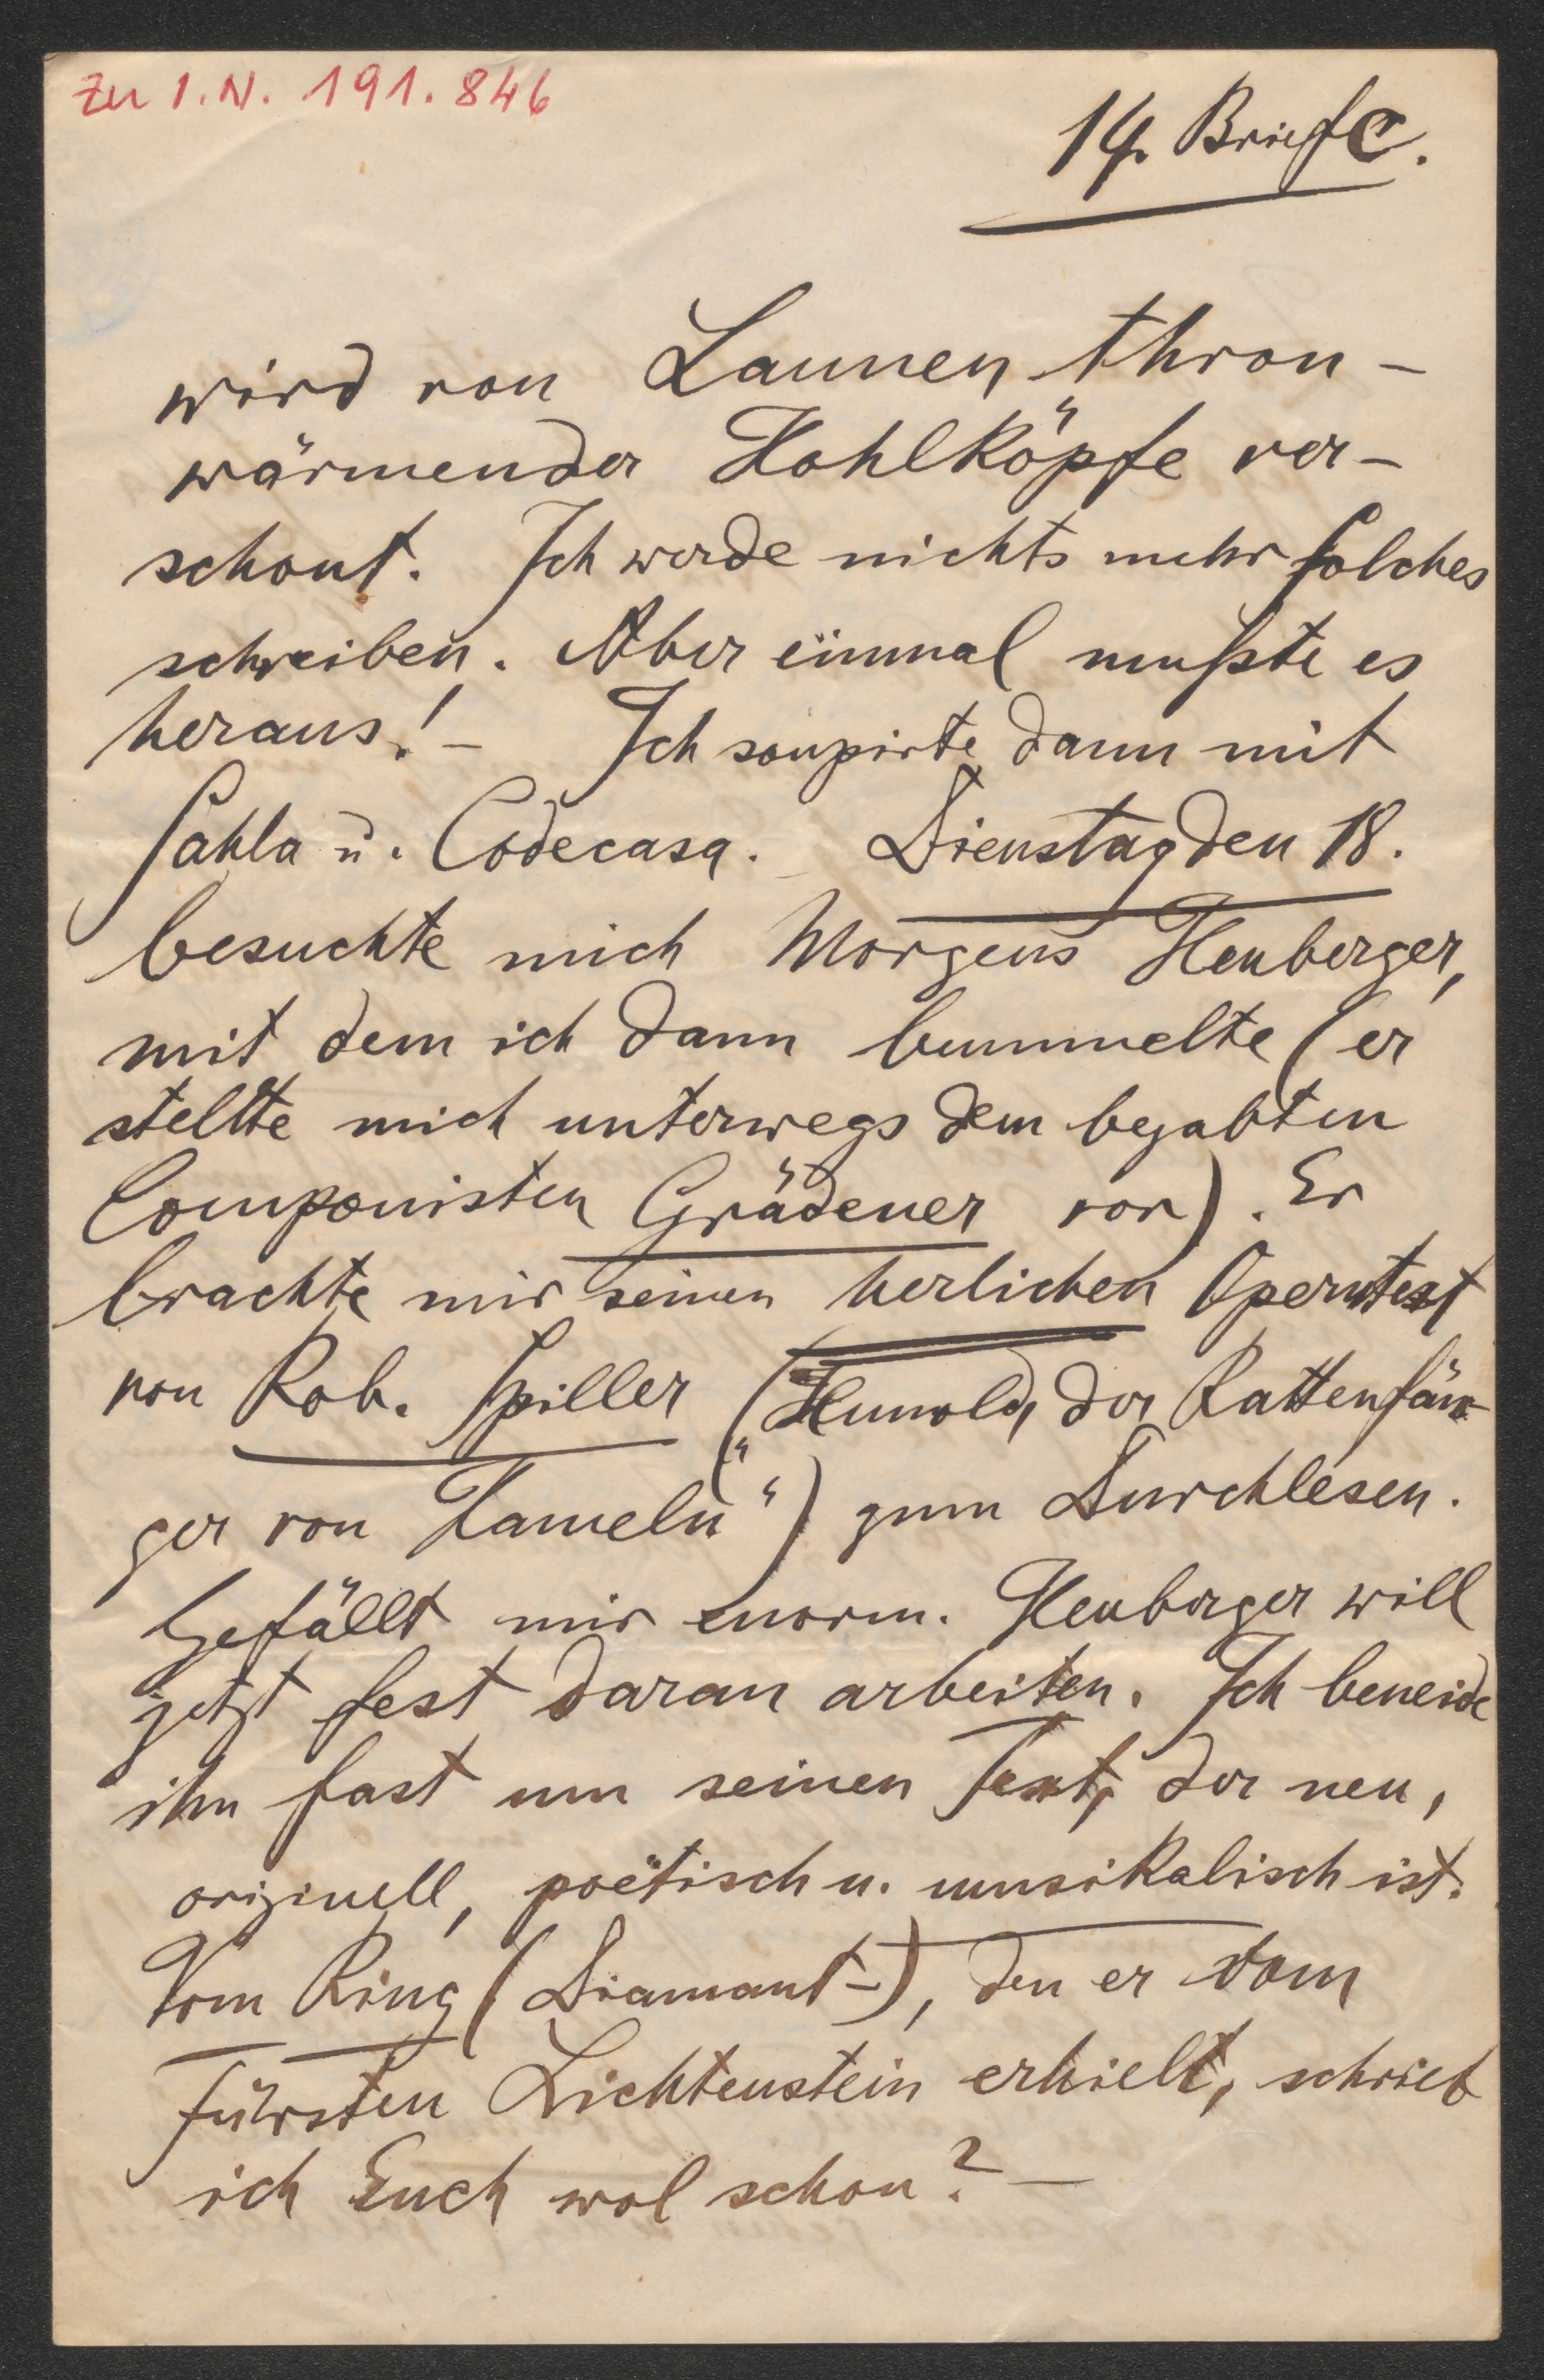 Zu I.N. 191.846
14. Brief C.
wird von Launen thron-
wärmender Hohlköpfe ver-
schont. Ich werde nichts mehr solches
schreiben. Aber einmal mußte es
heraus! – Ich soupirte dann mit
Sahla u. Codecasa. Dienstag den 18.
besuchte mich Morgens Heuberger,
mit dem ich dann bummelte (er
stellte mich unterwegs dem begabten
Componisten Grädener vor). Er
brachte mir seinen herlichen Operntext
von Rob. Spiller („Hunold, der Rattenfän-
ger von Hameln“) zum Durchlesen.
Gefällt mir enorm. Heuberger will
jetzt fest daran arbeiten. Ich beneide
ihn fast um seinen Text, der neu,
originell, poëtisch u. musikalisch ist.
Vom Ring (Diamant-), den er vom
Fürsten Lichtenstein erhielt, schrieb
ich Euch wol schon? –